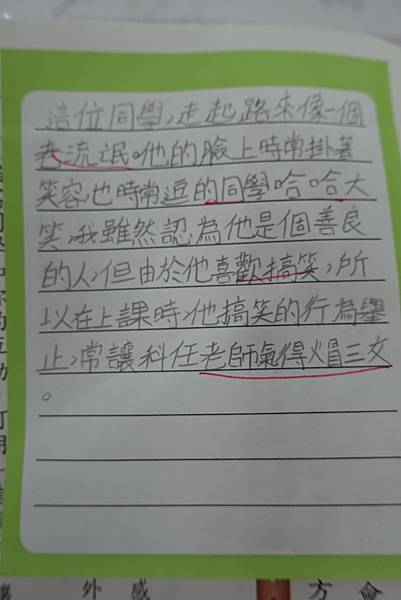 這位同學,走起路來像一個
老流氓。他的臉上時常掛著
笑容,也時常逗的同學哈哈大
笑,我雖然認為他是個善良
的人,但由於他喜歡搞笑,所
以在上課時,他搞笑的行為舉
止,常讓科任老師氣得火冒三丈
。
外 感 方